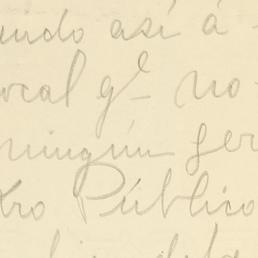 undo así á
ocal gl- no-
ningún ger
tro Público